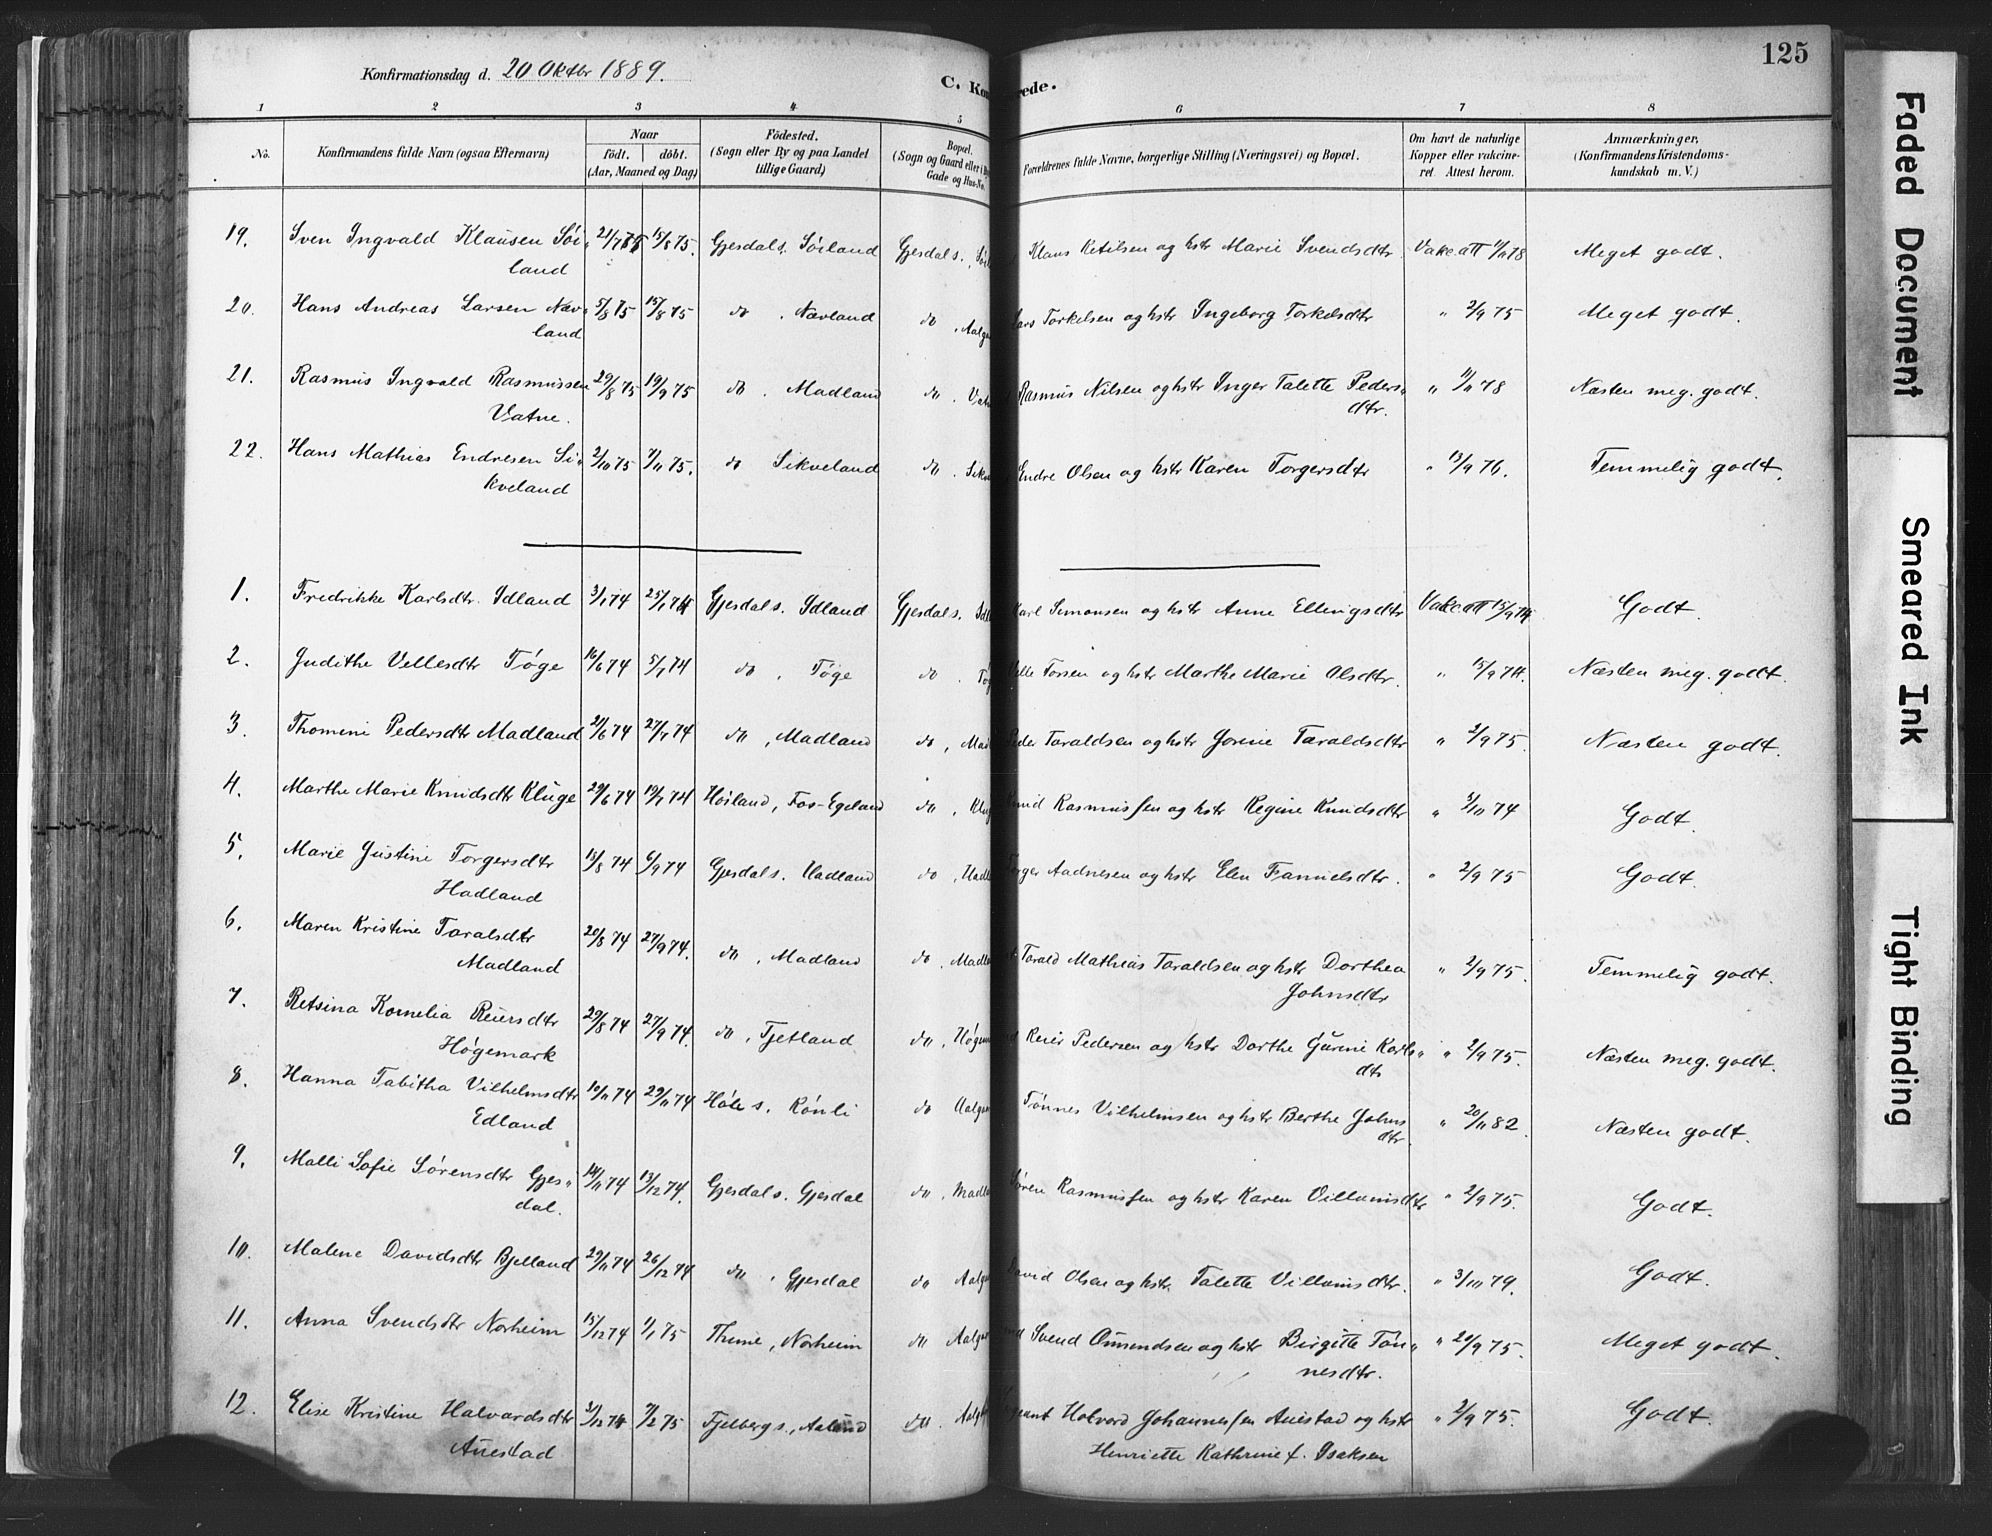 125
Konfirmationsdag d. 20 Oktbr 1889.
C. Kon rede.
1 2 3 4 5 6 7 8
No. Konfirmandens fulde Navn (ogsaa Efternavn) Naar födt. döbt. (Aar, Maaned og Dag) Födested. (Sogn eller By og paa Landet tillige Gaard) Bopæl. (Sogn og Gaard eller i By Gade og Hus-No. Forældrenes fulde Navne, borgerlige Stilling (Næringsvei) og Bopæl. Om havt de naturlige Kopper eller vakcineret. Attest herom. Anmærkninger, (Konfirmandens Kristendomskundskab m. V.)
19. Sven Ingvald Klausen Söi- 21/7 75 15/8 75. Gjesdal s. Söiland Gjesdal s. Klaus Ketilsen og hstr Marie Svendsdtr Vakc. att 1/11 78 Meget godt.
land
20. Hans Andreas Larsen Næv- 5/8 75 15/8 75 do , Nævland do , Aalg Torkelsen og hstr Ingeborg Torkelsdtr " 2/9 75 Meget godt.
land
21. Rasmus Ingvald Rasmussen 29/8 75 19/9 75 do . Madland do . Rasmus Nilsen og hstr Inger Talette Peders- " 11/11 78 Næsten meg. godt.
Vatne. dtr.
22. Hans Mathias Endresen Si- 2/10 75 7/11 75. do Sikveland do . Sikv Endre Olsen og hstr Karen Torgersdtr " 13/9 76. Temmelig godt.
kveland
1. Fredrikke Karlsdtr. Idland 3/1 74 25/1 74 Gjesdal s. Idland Gjesdal s. Karl Simonsen og hstr Anne Ellingsdtr Vakc. att 15/9 74 Godt.
2. Judithe Vellesdtr Töge 16/6 74 5/7 74 do , Töge do . Tög Velle Torsen og hstr Marthe Marie Olsdtr. " 15/9 74. Næsten meg. godt.
3. Thomine Pedersdtr Madland 21/6 74 27/7 74 do , Madland do , Mad Peder Taraldsen og hstr Jorine Taraldsdtr " 2/9 75. Næsten godt.
4. Marthe Marie Knudsdtr Kluge 29/6 74 19/7 74 Hösland, Fos-Egeland do , Klu Knud Rasmussen og hstr Regine Knudsdtr " 3/10 74 Godt.
5. Marie Justine Torgersdtr 15/8 74 6/9 74 Gjesdal s. Hadland do , Hadl Torger Aadnesen og hstr Elen Samuelsdtr. " 2/9 75 Godt.
Hadland
6. Maren Kristine Taralsdtr 20/8 74 27/9 74. do , Madland do . Madl Tarald Mathias Taraldsen og hstr Dorthea " 2/9 75. Temmelig godt.
Madland Johnsdtr
7. Retsina Kornelia Reiersdtr 29/8 74 27/9 74. do , Tjetland do , Högem Reier Pedersen og hstr Dorthe Gurine Karls- " 2/9 75. Næsten meg. godt.
Högemark dtr
8. Hanna Tabitha Vilhelmsdtr 10/11 74 29/11 74 Höle s. Rönli do Aalg Tönnes Vilhelmsen og hstr Berthe Johns " 20/11 82. Næsten godt.
Edland dtr
9. Malli Sofie Sörensdtr Gjes- 14/11 74 13/12 74. Gjesdal s. Gjesdal do , Madl Sören Rasmussen og hstr Karen Villumsdtr " 2/9 75. Godt.
dal.
10. Malene Davidsdtr Bjelland 29/11 74 26/12 74 do , Gjesdal do Aalg David Olsen og hstr. Talette Villumsdtr. " 3/10 79. Godt.
11. Anna Svendsdtr Norheim 15/12 74 1/1 75 Thime, Norheim do Aalg Svend Omundsen og hstr Birgitte Tön- " 20/9 75. Meget godt.
nesdtr.
12. Elise Kristine Halvardsdtr 3/12 74 7/2 75 Fjelberg s., do , Aalg Halvard Johannessen Auestad og hstr " 2/9 75. Godt.
Auestad Henriette Kathrine f. Isaksen
Faded Document
Smeared Ink
Tight Binding